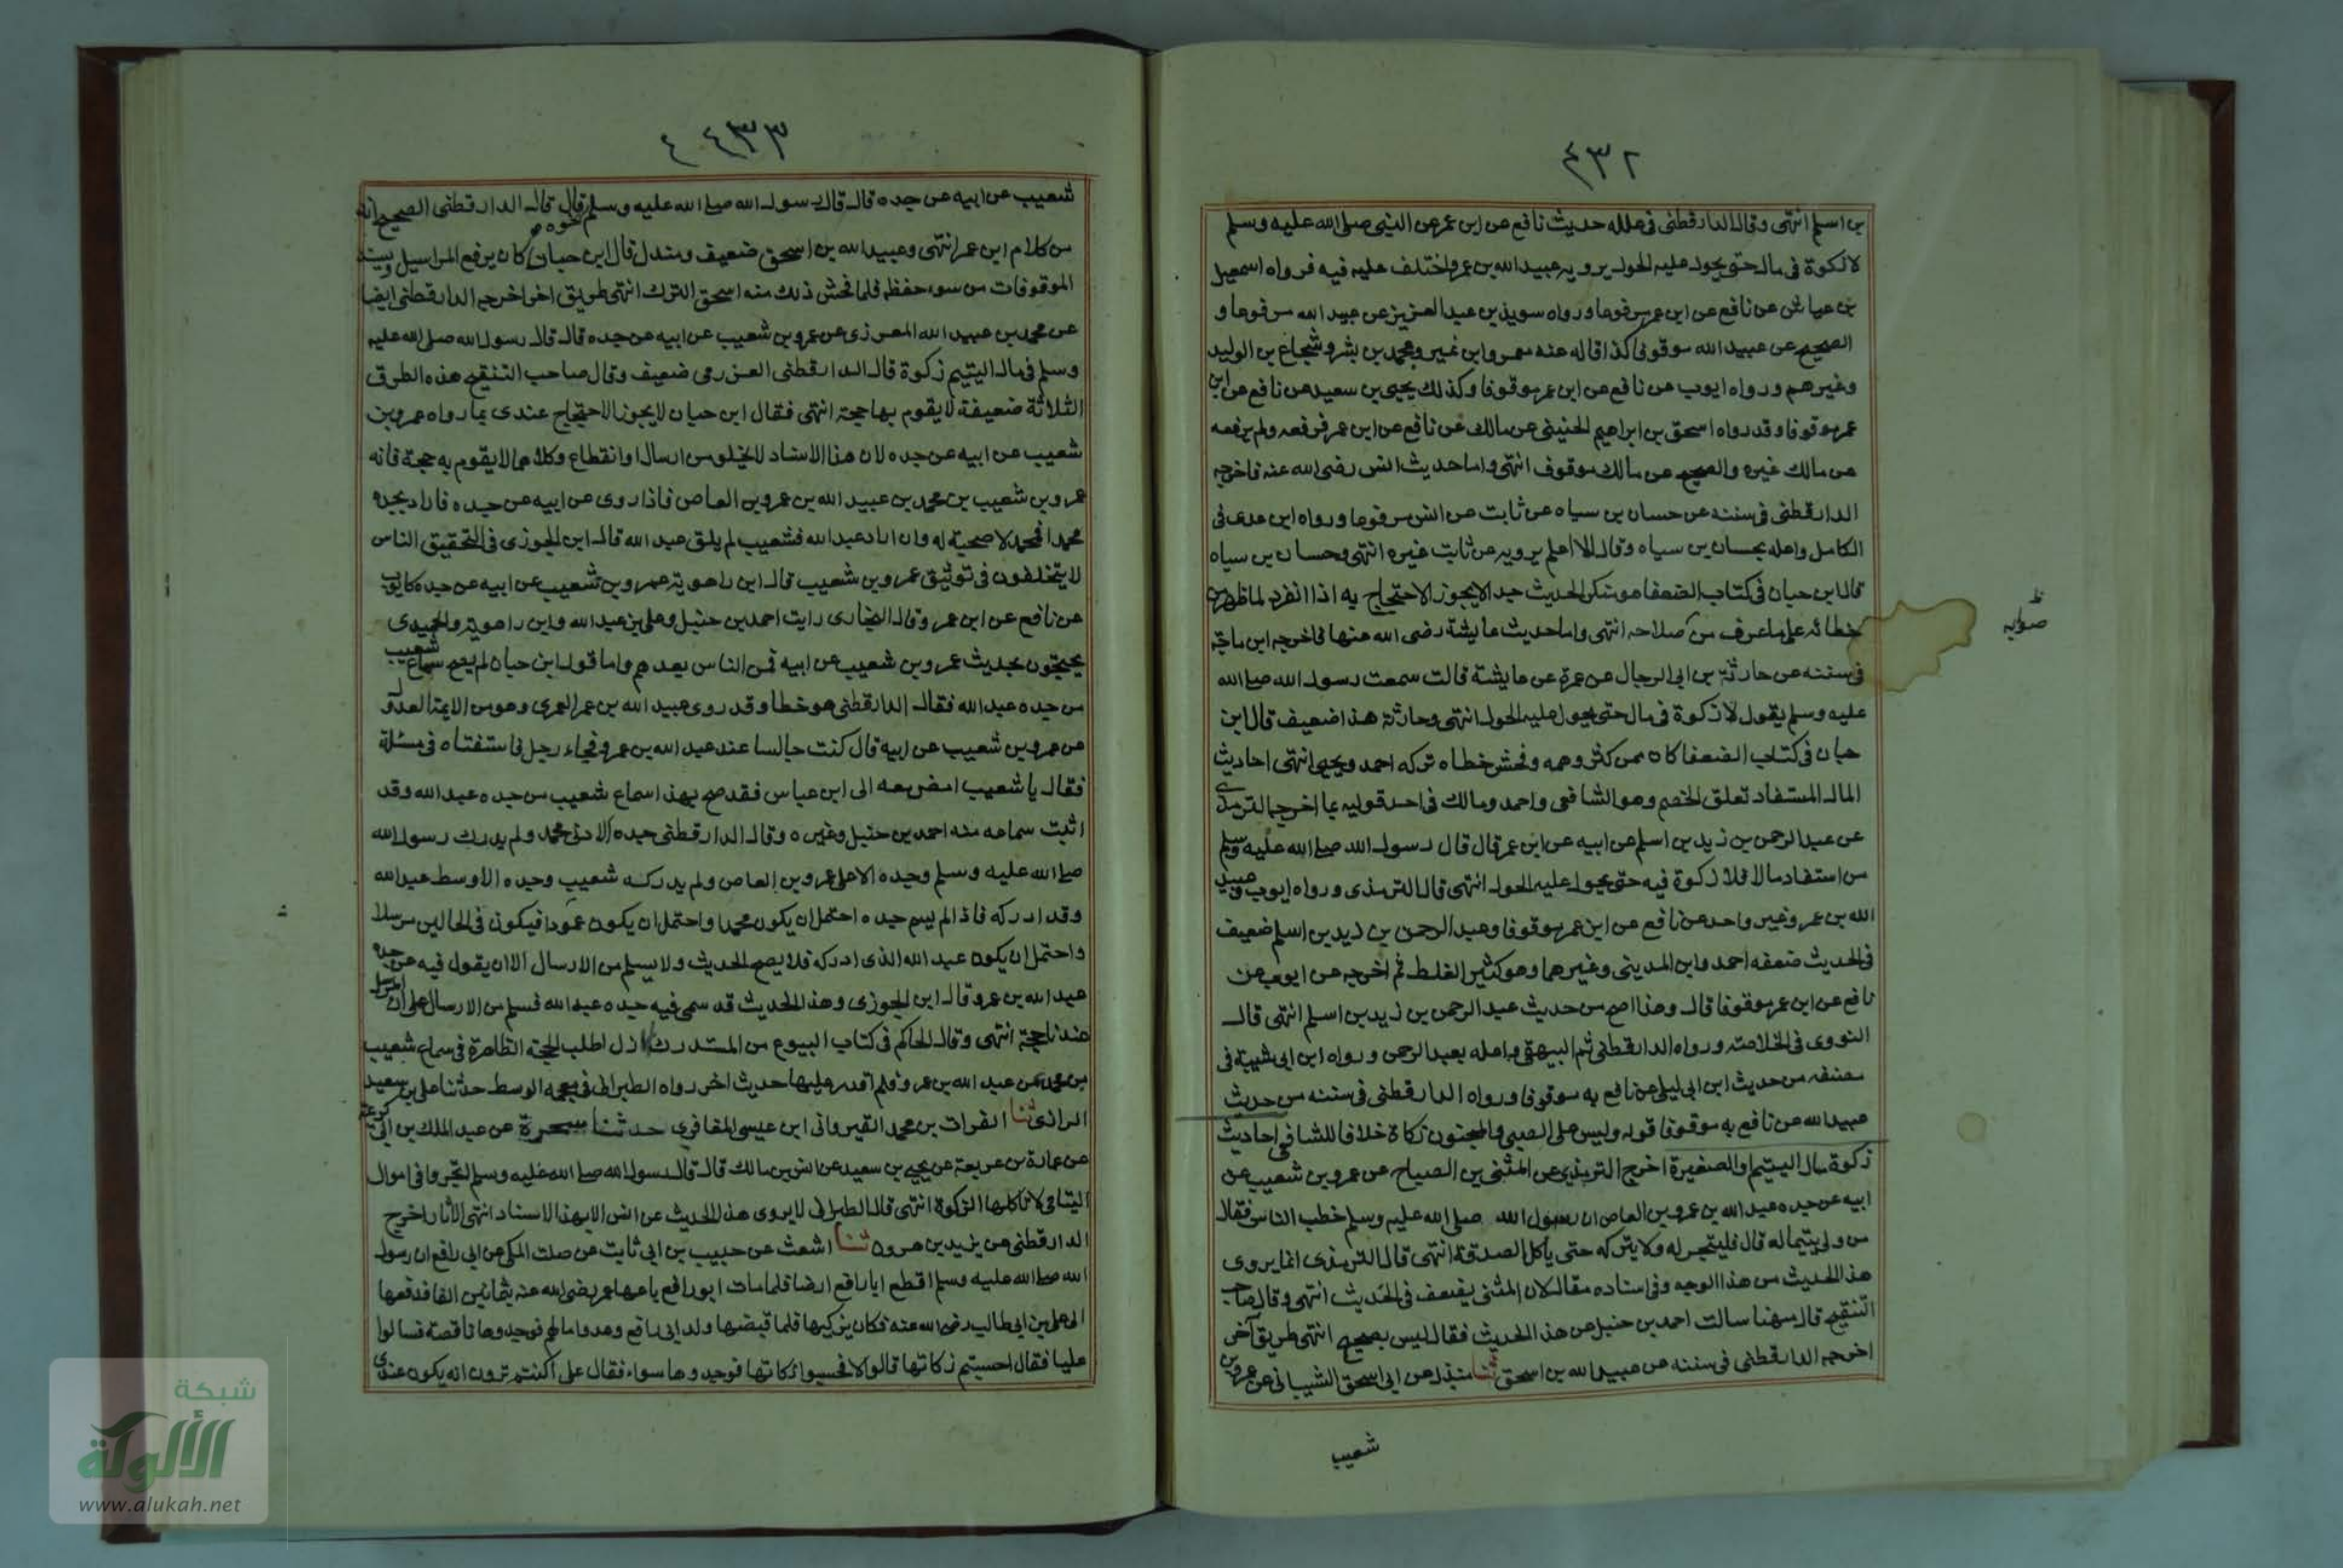 ٤٣٢
بن اسلم انتهى وقال الدارقطنى فى علله حديث نافع عن ابن عمر عن النبى صلى الله عليه وسلم
لا زكوة فى مال حتى يحول عليه الحول يرويه عبيد الله بن عمر واختلف عليه فيه فرواه اسمعيل
بن عياش عن نافع عن ابن عمر مرفوعا ورواه سويد بن عبد العزيز عن عبيد الله مرفوعا و
الصحيح عن عبيد الله موقوفا كذا قاله عنه معمر وابن نمير ومحمد بن بشر وشجاع بن الوليد
وغيرهم ورواه ايوب عن نافع عن ابن عمر موقوفا وكذلك يحيى بن سعيد عن نافع عن ابن
عمر موقوفا وقد رواه اسحق بن ابراهيم الحنينى عن مالك عن نافع عن ابن عمر فرفعه ولم يرفعه
عن مالك غيره والصحيح عن مالك موقوف انتهى واما حديث انس رضى الله عنه فاخرجه
الدارقطنى فى سننه عن حسان بن سياه عن ثابت عن انس مرفوعا ورواه ابن عدى فى
الكامل واعله بحسان بن سياه وقال لا اعلم يرويه عن ثابت غيره انتهى وحسان بن سياه
قال ابن حبان فى كتاب الضعفا هو منكر الحديث جدا لا يجوز الاحتجاج به اذا انفرد لما ظهر من
خطائه على ما عرف من صلاحه انتهى واما حديث عايشة رضى الله عنها فاخرجه ابن ماجة
ظ
صوابه
فى سننه عن حارثة بن ابى الرجال عن عمرة عن عايشة قالت سمعت رسول الله صلى الله
عليه وسلم يقول لا زكوة فى مال حتى يحول عليه الحول انتهى وحارثة هذا ضعيف قال ابن
حبان فى كتاب الضعفا كان ممن كثر وهمه وفحش خطاه تركه احمد ويحيى انتهى احاديث
المال المستفاد تعلق الخصم وهو الشافعى واحمد ومالك فى احد قوليه بما اخرجه الترمذى
عن عبد الرحمن بن زيد بن اسلم عن ابيه عن ابن عمر قال قال رسول الله صلى الله عليه وسلم
من استفاد مالا فلا زكوة فيه حتى يحول عليه الحول انتهى قال الترمذى ورواه ايوب وعبيد
الله بن عمر وغير واحد عن نافع عن ابن عمر موقوفا وعبد الرحمن بن زيد بن اسلم ضعيف
فى الحديث ضعفه احمد وابن المدينى وغيرهما وهو كثير الغلط ثم اخرجه عن ايوب عن
نافع عن ابن عمر موقوفا قال وهذا اصح من حديث عبد الرحمن بن زيد بن اسلم انتهى قال
النووى فى الخلاصة ورواه الدارقطنى ثم البيهقى واعله بعبد الرحمن ورواه ابن ابى شيبة فى
مصنفه من حديث ابن ابى ليلى عن نافع به موقوفا ورواه الدارقطنى فى سننه من حديث
عبيد الله عن نافع به موقوفا قوله وليس على الصبى والمجنون زكاة خلافا للشافعى احاديث
زكوة مال اليتيم والصغيرة اخرج الترمذى عن المثنى بن الصباح عن عمرو بن شعيب عن
ابيه عن جده عبد الله بن عمرو بن العاص ان رسول الله صلى الله عليه وسلم خطب الناس فقال
من ولى يتيما له قال فليتجر له ولا يتركه حتى ياكل الصدقة انتهى قال الترمذى انما يروى
هذا الحديث من هذا الوجه وفى اسناده مقال لان المثنى يضعف فى الحديث انتهى وقال صاحب
التنقيح قال مهنا سالت احمد بن حنبل عن هذا الحديث فقال ليس بصحيح انتهى طريق آخر
اخرجه الدارقطنى فى سننه عن عبيد الله بن اسحق ثنا مندل عن ابى اسحق الشيبانى عن عمرو بن
شعيب
٤٣٣
شعيب عن ابيه عن جده قال قال رسول الله صلى الله عليه وسلم نحوه قال قال الدارقطنى الصحيح انه
من كلام ابن عمر انتهى وعبيد الله بن اسحق ضعيف ومندل قال ابن حبان كان يرفع المراسيل ويسند
الموقوفات من سوء حفظه فلما فحش ذلك منه استحق الترك انتهى طريق اخر اخرجه الدارقطنى ايضا
عن محمد بن عبيد الله العرزمى عن عمرو بن شعيب عن ابيه عن جده قال قال رسول الله صلى الله عليه
وسلم فى مال اليتيم زكوة قال الدارقطنى العزرمى ضعيف وقال صاحب التنقيح هذه الطرق
الثلاثة ضعيفة لا يقوم بها حجة انتهى فقال ابن حبان لا يجوز الاحتجاج عندى بما رواه عمرو بن
شعيب عن ابيه عن جده لان هذا الاسناد لا يخلو من ارسال او انقطاع وكلاهما لا يقوم به حجة فانه
عمرو بن شعيب بن محمد بن عبيد الله بن عمرو بن العاص فاذا روى عن ابيه عن جده فاراد بجده
محمدا فمحمد لا صحبة له وان اراد عبد الله فشعيب لم يلق عبد الله قال ابن الجوزى فى التحقيق الناس
لا يختلفون فى توثيق عمرو بن شعيب قال ابن راهويه عمرو بن شعيب عن ابيه عن جده كايوب
عن نافع عن ابن عمر وقال البخارى رايت احمد بن حنبل وعلى بن عبد الله وابن راهويه والحميدى
يحتجون بحديث عمرو بن شعيب عن ابيه فمن الناس بعدهم واما قول ابن حبان لم يصح سماع شعيب
من جده عبد الله فقال الدارقطنى هو خطا وقد روى عبيد الله بن عمر العمرى وهو من الايمة العدول
عن عمرو بن شعيب عن ابيه قال كنت جالسا عند عبد الله بن عمرو فجاء رجل فاستفتاه فى مسئلة
فقال يا شعيب امض معه الى ابن عباس فقد صح بهذا سماع شعيب من جده عبد الله وقد
اثبت سماعه منه احمد بن حنبل وغيره وقال الدارقطنى جده الادنى محمد ولم يدرك رسول الله
صلى الله عليه وسلم وجده الاعلى عمرو بن العاص ولم يدركه شعيب وجده الاوسط عبد الله
وقد ادركه فاذا لم يسم جده احتمل ان يكون محمدا واحتمل ان يكون عمروا فيكون فى الحالين مرسلا
واحتمل ان يكون عبد الله الذى ادركه فلا يصح الحديث ولا يسلم من الارسال الا ان يقول فيه عن جده
عبد الله بن عمرو قال ابن الجوزى وهذا الحديث قد سمى فيه جده عبد الله فسلم من الارسال على ان المرسل
عندنا حجة انتهى وقال الحاكم فى كتاب البيوع من المستدرك لم ازل اطلب الحجة الظاهرة فى سماع شعيب
بن محمد عن عبد الله بن عمرو فلم اقدر عليها حديث اخر رواه الطبرانى فى معجمه الوسط حدثنا على بن سعيد
الرازى ثنا الفرات بن محمد القيروانى ابن عيسى المغافرى حدثنا سحرة عن عبد الملك بن ابى كريمة
عن عمارة بن عربعة عن يحيى بن سعيد عن انس بن مالك قال قال رسول الله صلى الله عليه وسلم اتجروا فى اموال
اليتامى لا تاكلها الزكوة انتهى قال الطبرانى لا يروى هذا الحديث عن انس الا بهذا الاسناد انتهى الاثار اخرج
الدارقطنى عن يزيد بن هرون ثنا اشعث عن حبيب بن ابى ثابت عن صلت المكى عن ابى رافع ان رسول
الله صلى الله عليه وسلم اقطع ابا رافع ارضا فلما مات ابو رافع باعها عمر رضى الله عنه بثمانين الفا فدفعها
الى على بن ابى طالب رضى الله عنه فكان يزكيها فلما قبضها ولد ابى رافع وعدوا مالهم فوجدوها ناقصة فسالوا
عليا فقال احسبتم زكاتها قالوا لا فحسبوا زكاتها فوجدوها سواء فقال على اكنتم ترون انه يكون عندى
شبكة
الألوكة
www.alukah.net